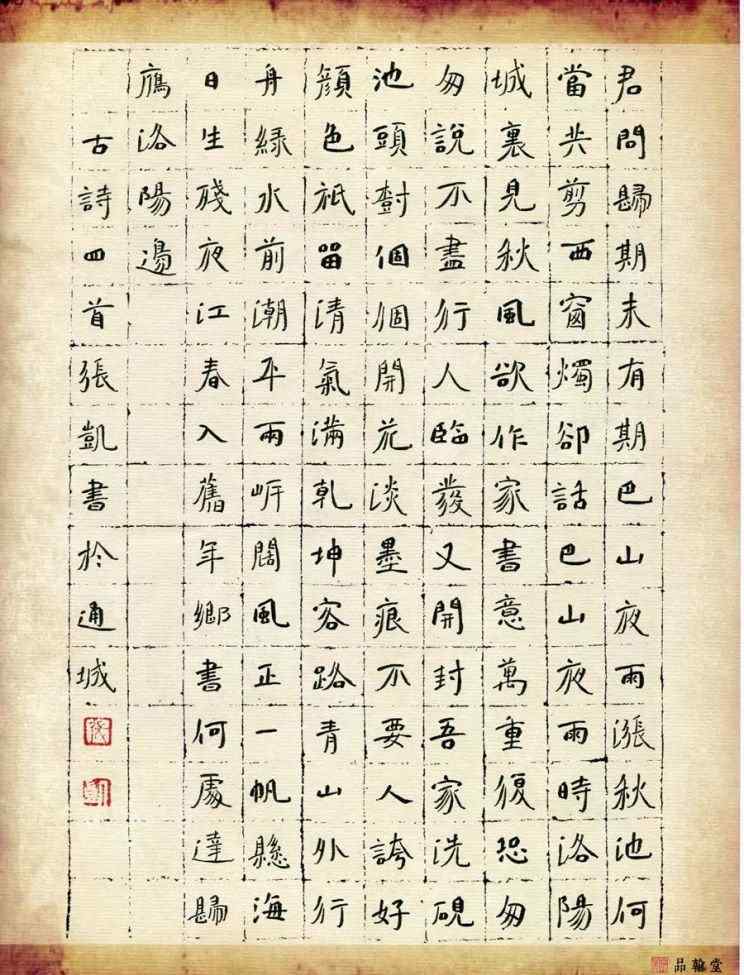 君問歸期未有期巴山夜雨漲秋池何
當共剪西窗燭卻話巴山夜雨時洛陽
城裏見秋風欲作家書意萬重復恐匆
匆說不盡行人臨發又開封吾家洗硯
池頭樹個個開花淡墨痕不要人誇好
顏色祇留清氣滿乾坤客路青山外行
舟綠水前潮平兩岸闊風正一帆懸海
日生殘夜江春入舊年鄉書何處達歸
鴈洛陽邊
古詩四首張凱書於通城
張
凱
品翰堂